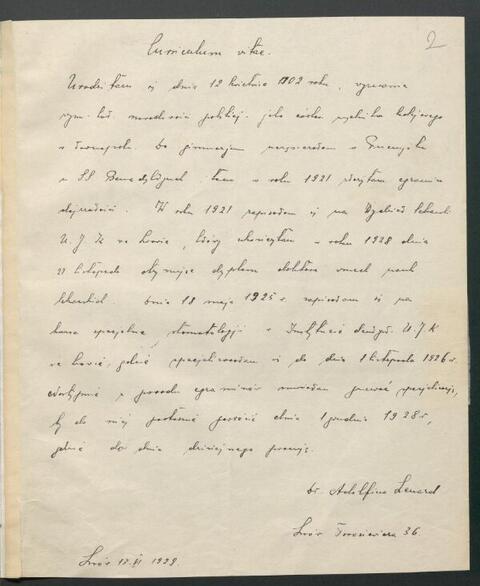 2
Curriculum vitae.
Urodziłam się dnia 12 kwietnia 1902 roku, wyznania
rzym. kat. narodowości polskiej jako córka urzędnika kolejowego
w Tarnopolu. Do gimnazjum uczęszczałam w Przemyślu
u SS Benedyktynek i tam w roku 1921 zdałam egzamin
dojrzałości. W roku 1921 zapisałam się na Wydział Lekarski
U. J. K. we Lwowie, który ukończyłam w roku 1928 dnia
listopada otrzymując dyplom doktora wszech nauk
lekarskich. Dnia 18 maja 1925 r. zapisałam się na
kurs specjalny stomatologji w Instytucie dentyst. U. J. K
we Lwowie, gdzie specjalizowałam się do dnia 1 listopada 1926 r.
Następnie z powodu egzaminów musiałam przerwać specjalizację,
by do niej powrócić dnia 1 grudnia 1928 r,
gdzie do dnia dzisiejszego pracuję.
Dr. Adolfina Lenard
Lwów 36.
Lwów VI 1929.